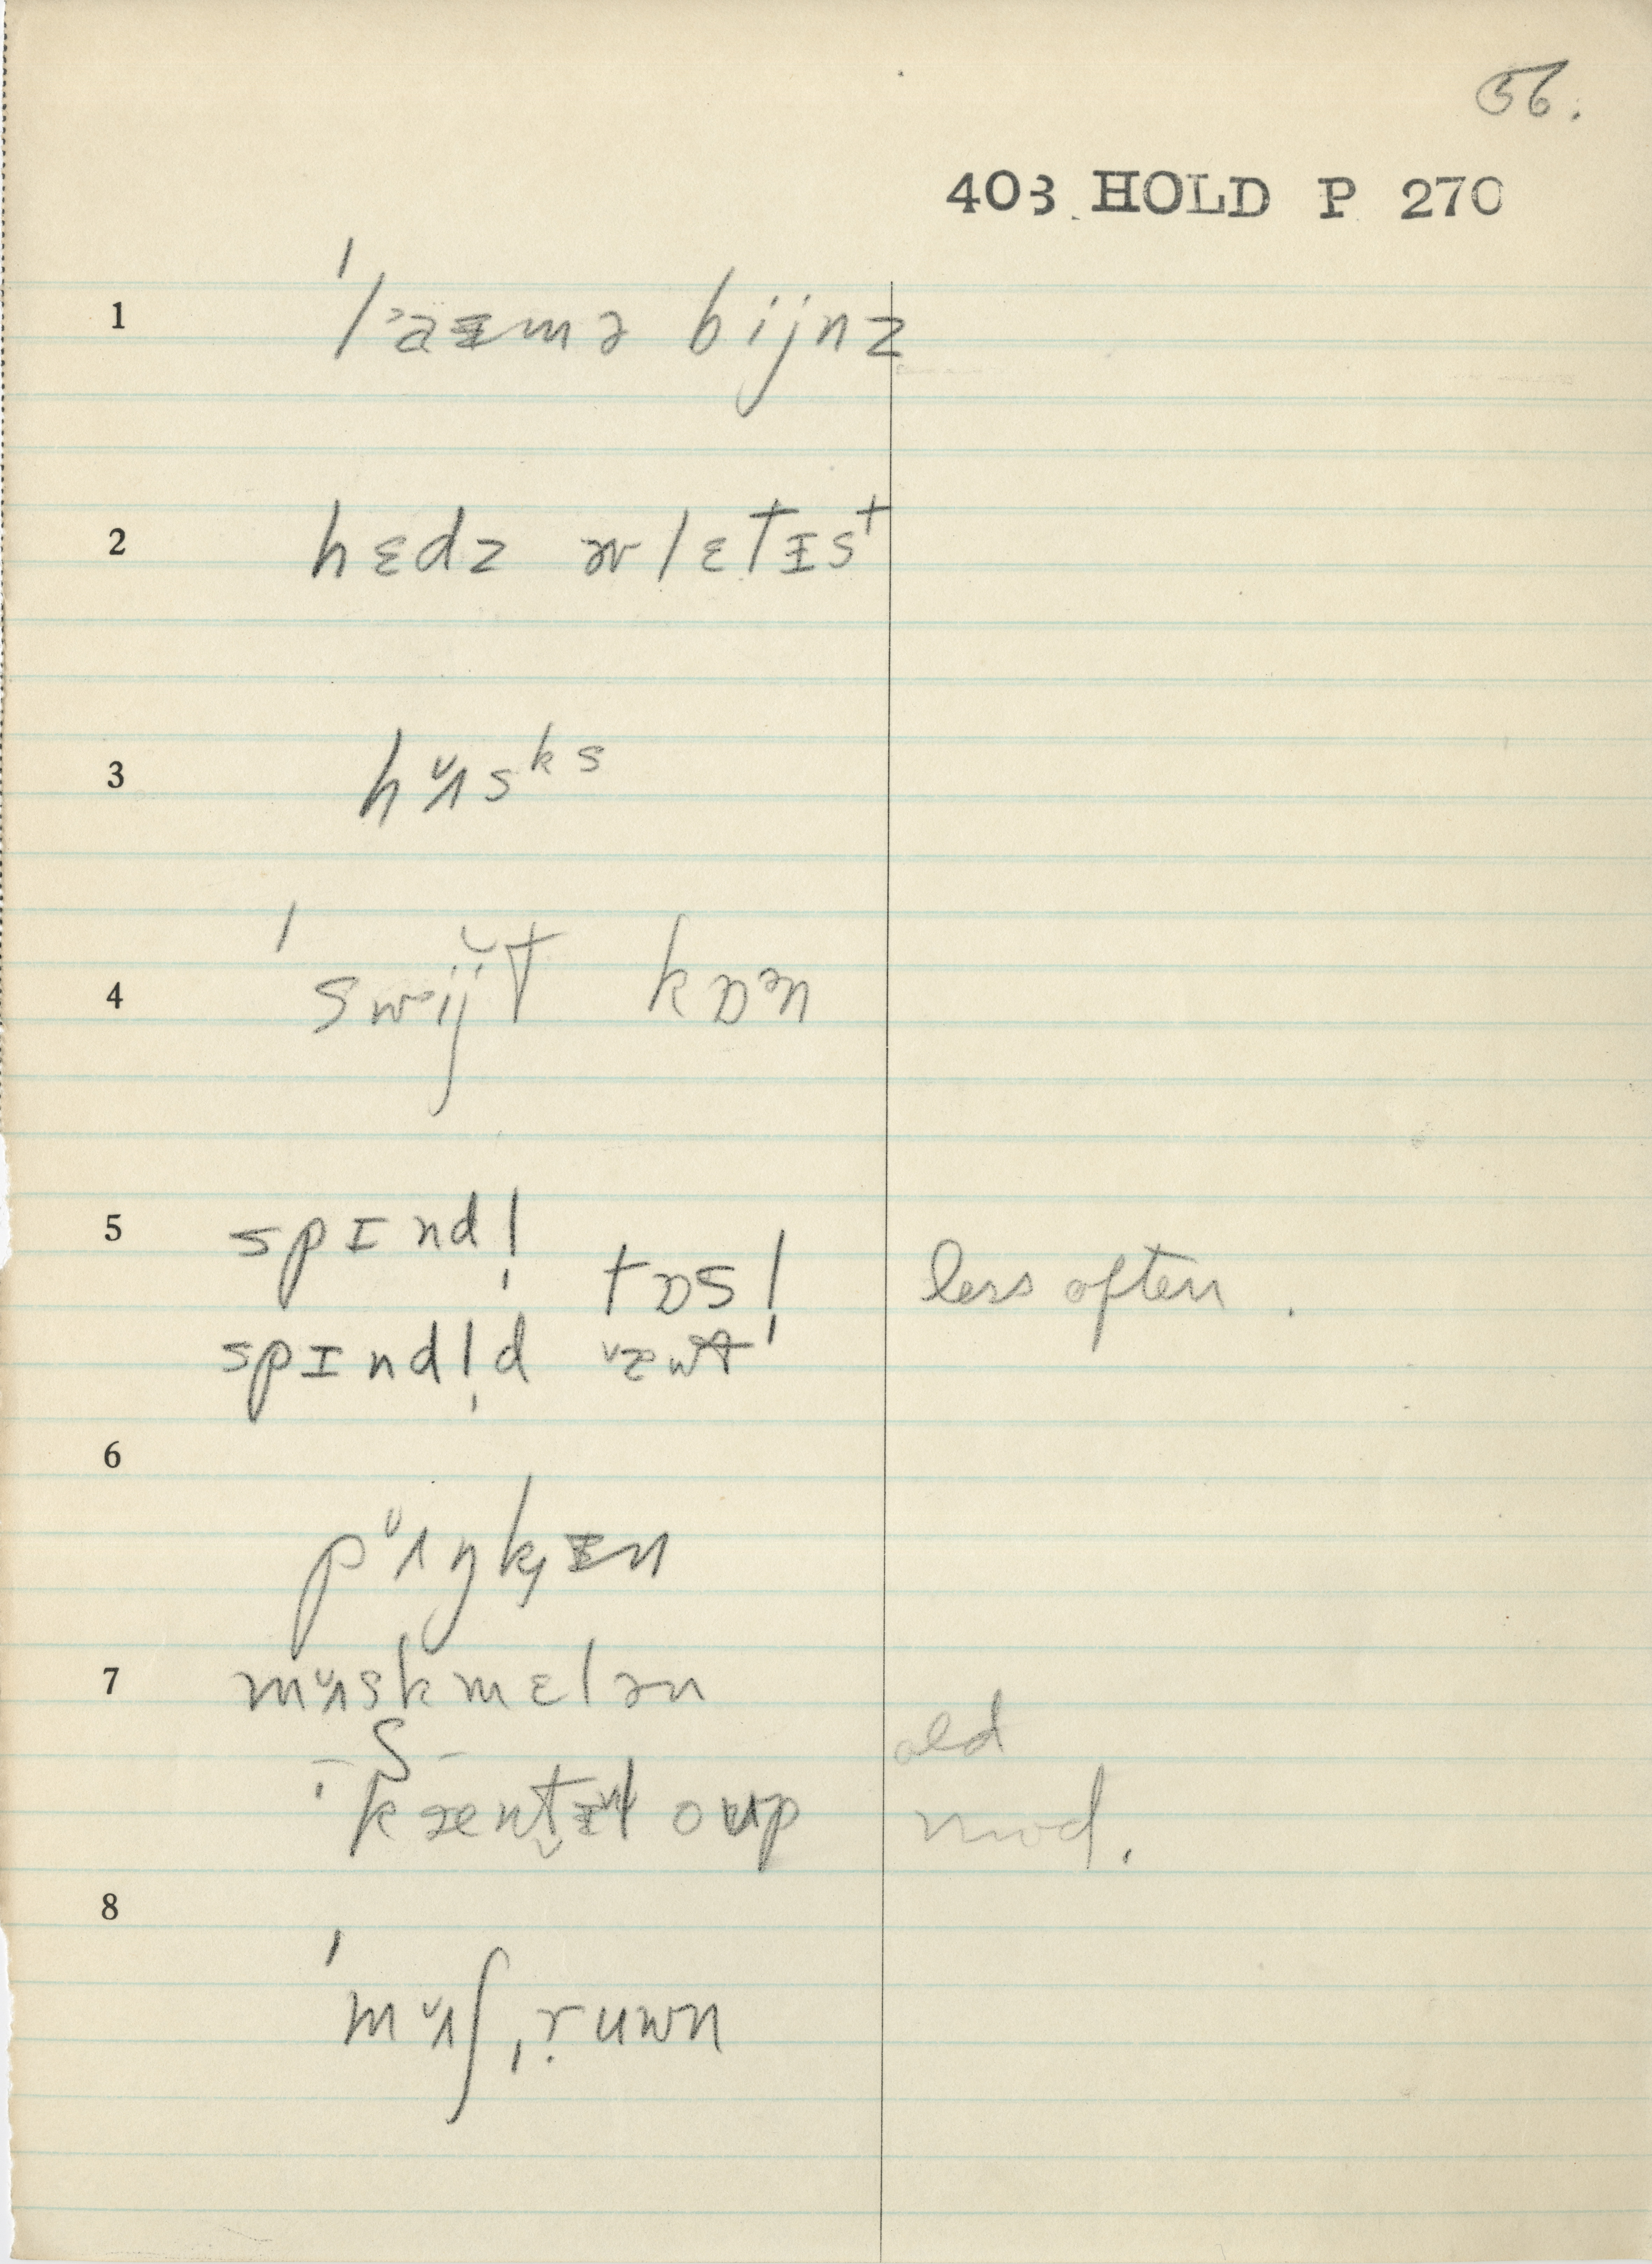 56.
403 HOLD P 270
1 ˈlˀaᵻmə bijnz
2 hɛdz əv lɛtɪst
3 hᵘʌsᵏˢ
4 ˈswᵊij̆t kɒᵊn
5 spɪnd!̩
tɒs!̩ less often.
spɪnd!̩d
6
pᵘʌŋkᵻn
7 mᵘʌskmɛlən
-S- old
ˈkæntᵻl oup mod.
8
ˈmᵘʌʃˌr̩uwn